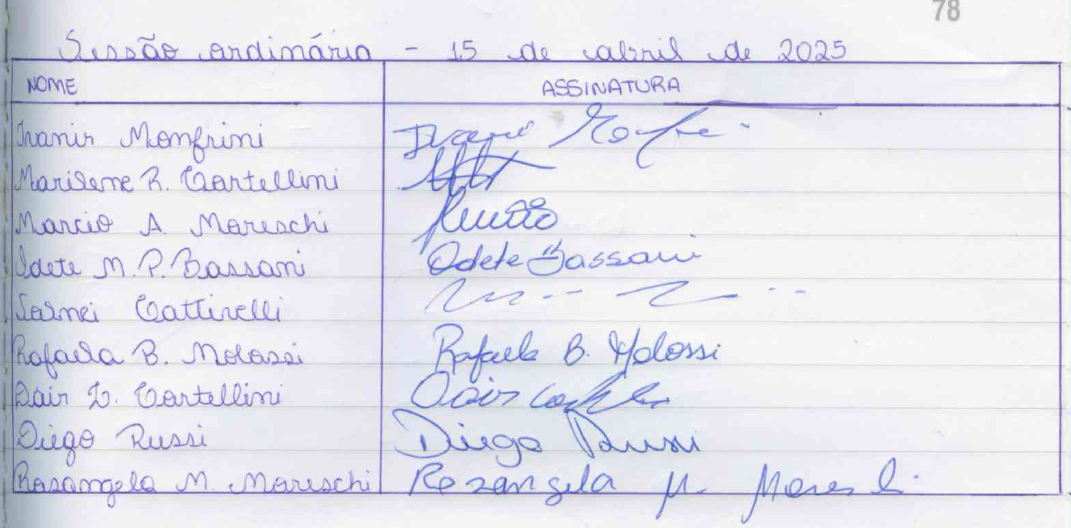 78
Sessão ordinária - 15 de abril de 2025
NOME ASSINATURA
Ivanir Monfrini
Marilene R. Cortellini
Marcio A. Mareschi
Odete M. P. Bassani Odete Bassani
Jarnei Cattinelli
Rafaela B. Molossi Rafaela B. Molossi
Odair L. Cortellini Odair
Diego Russi Diego Russi
Rosangela M. Mareschi Rosangela M. Mares